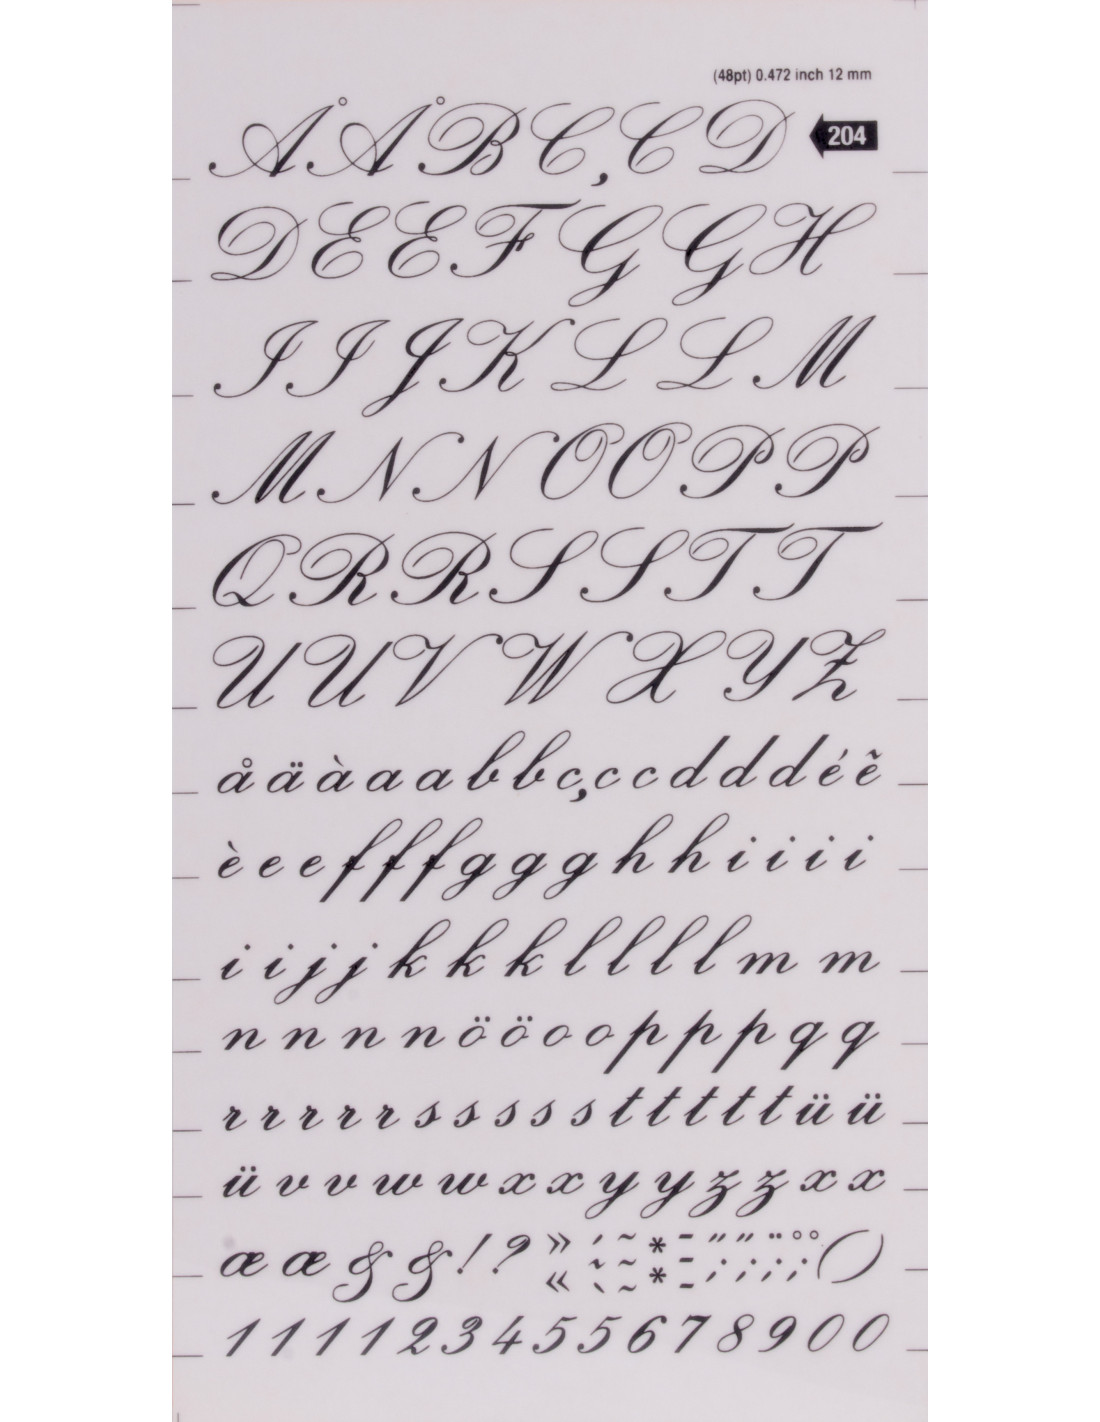 (48pt) 0.472 inch 12 mm
Å Å B C , C D 204
D E E F G G H
I I J K L L M
M N N O O P P
Q R R S S T T
U U V W X Y Z
å ä à a a b b c , c c d d d é ẽ
è e e f f f g g g h h i i i i
i i j j k k k l l l l m m
n n n n ö ö o o p p p q q
r r r r r s s s s s t t t t t ü ü
ü v v w w x x y y z z x x
æ æ & & ! ? » ´ ~ * - " " ¨ ° ° ( )
« ` ~ * - ; ; ; ;
1 1 1 1 2 3 4 5 5 6 7 8 9 0 0